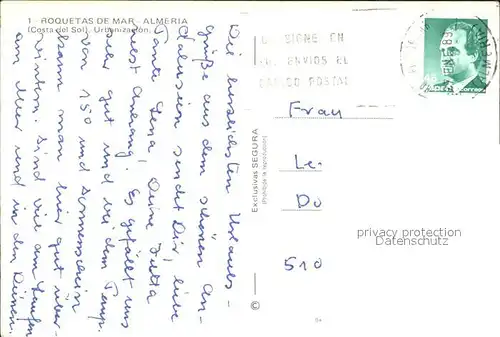 1 - ROQUETAS DE MAR - ALMERIA
(Costa del Sol). Urbanización.
Die herzlichsten Urlaubs-
grüße aus dem schönen An-
dalusien sendet Dir, liebe
Tante Lena, Deine Jutta
nebst Anhang. Es gefällt uns
sehr gut und bei dem Temp.
von 15° und Sonnenschein
kann man hier gut über-
wintern. Sind viel am Laufen
am Meer und in den Dünen.
Exclusivas SEGURA
(Prohibida la reproducción)
©
SIGNE EN
ENVIOS EL
POSTAL
correos
Frau
Le
Do
510
privacy protection
Datenschutz